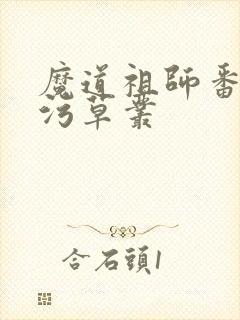 魔道祖師番
污草叢
合石頭1